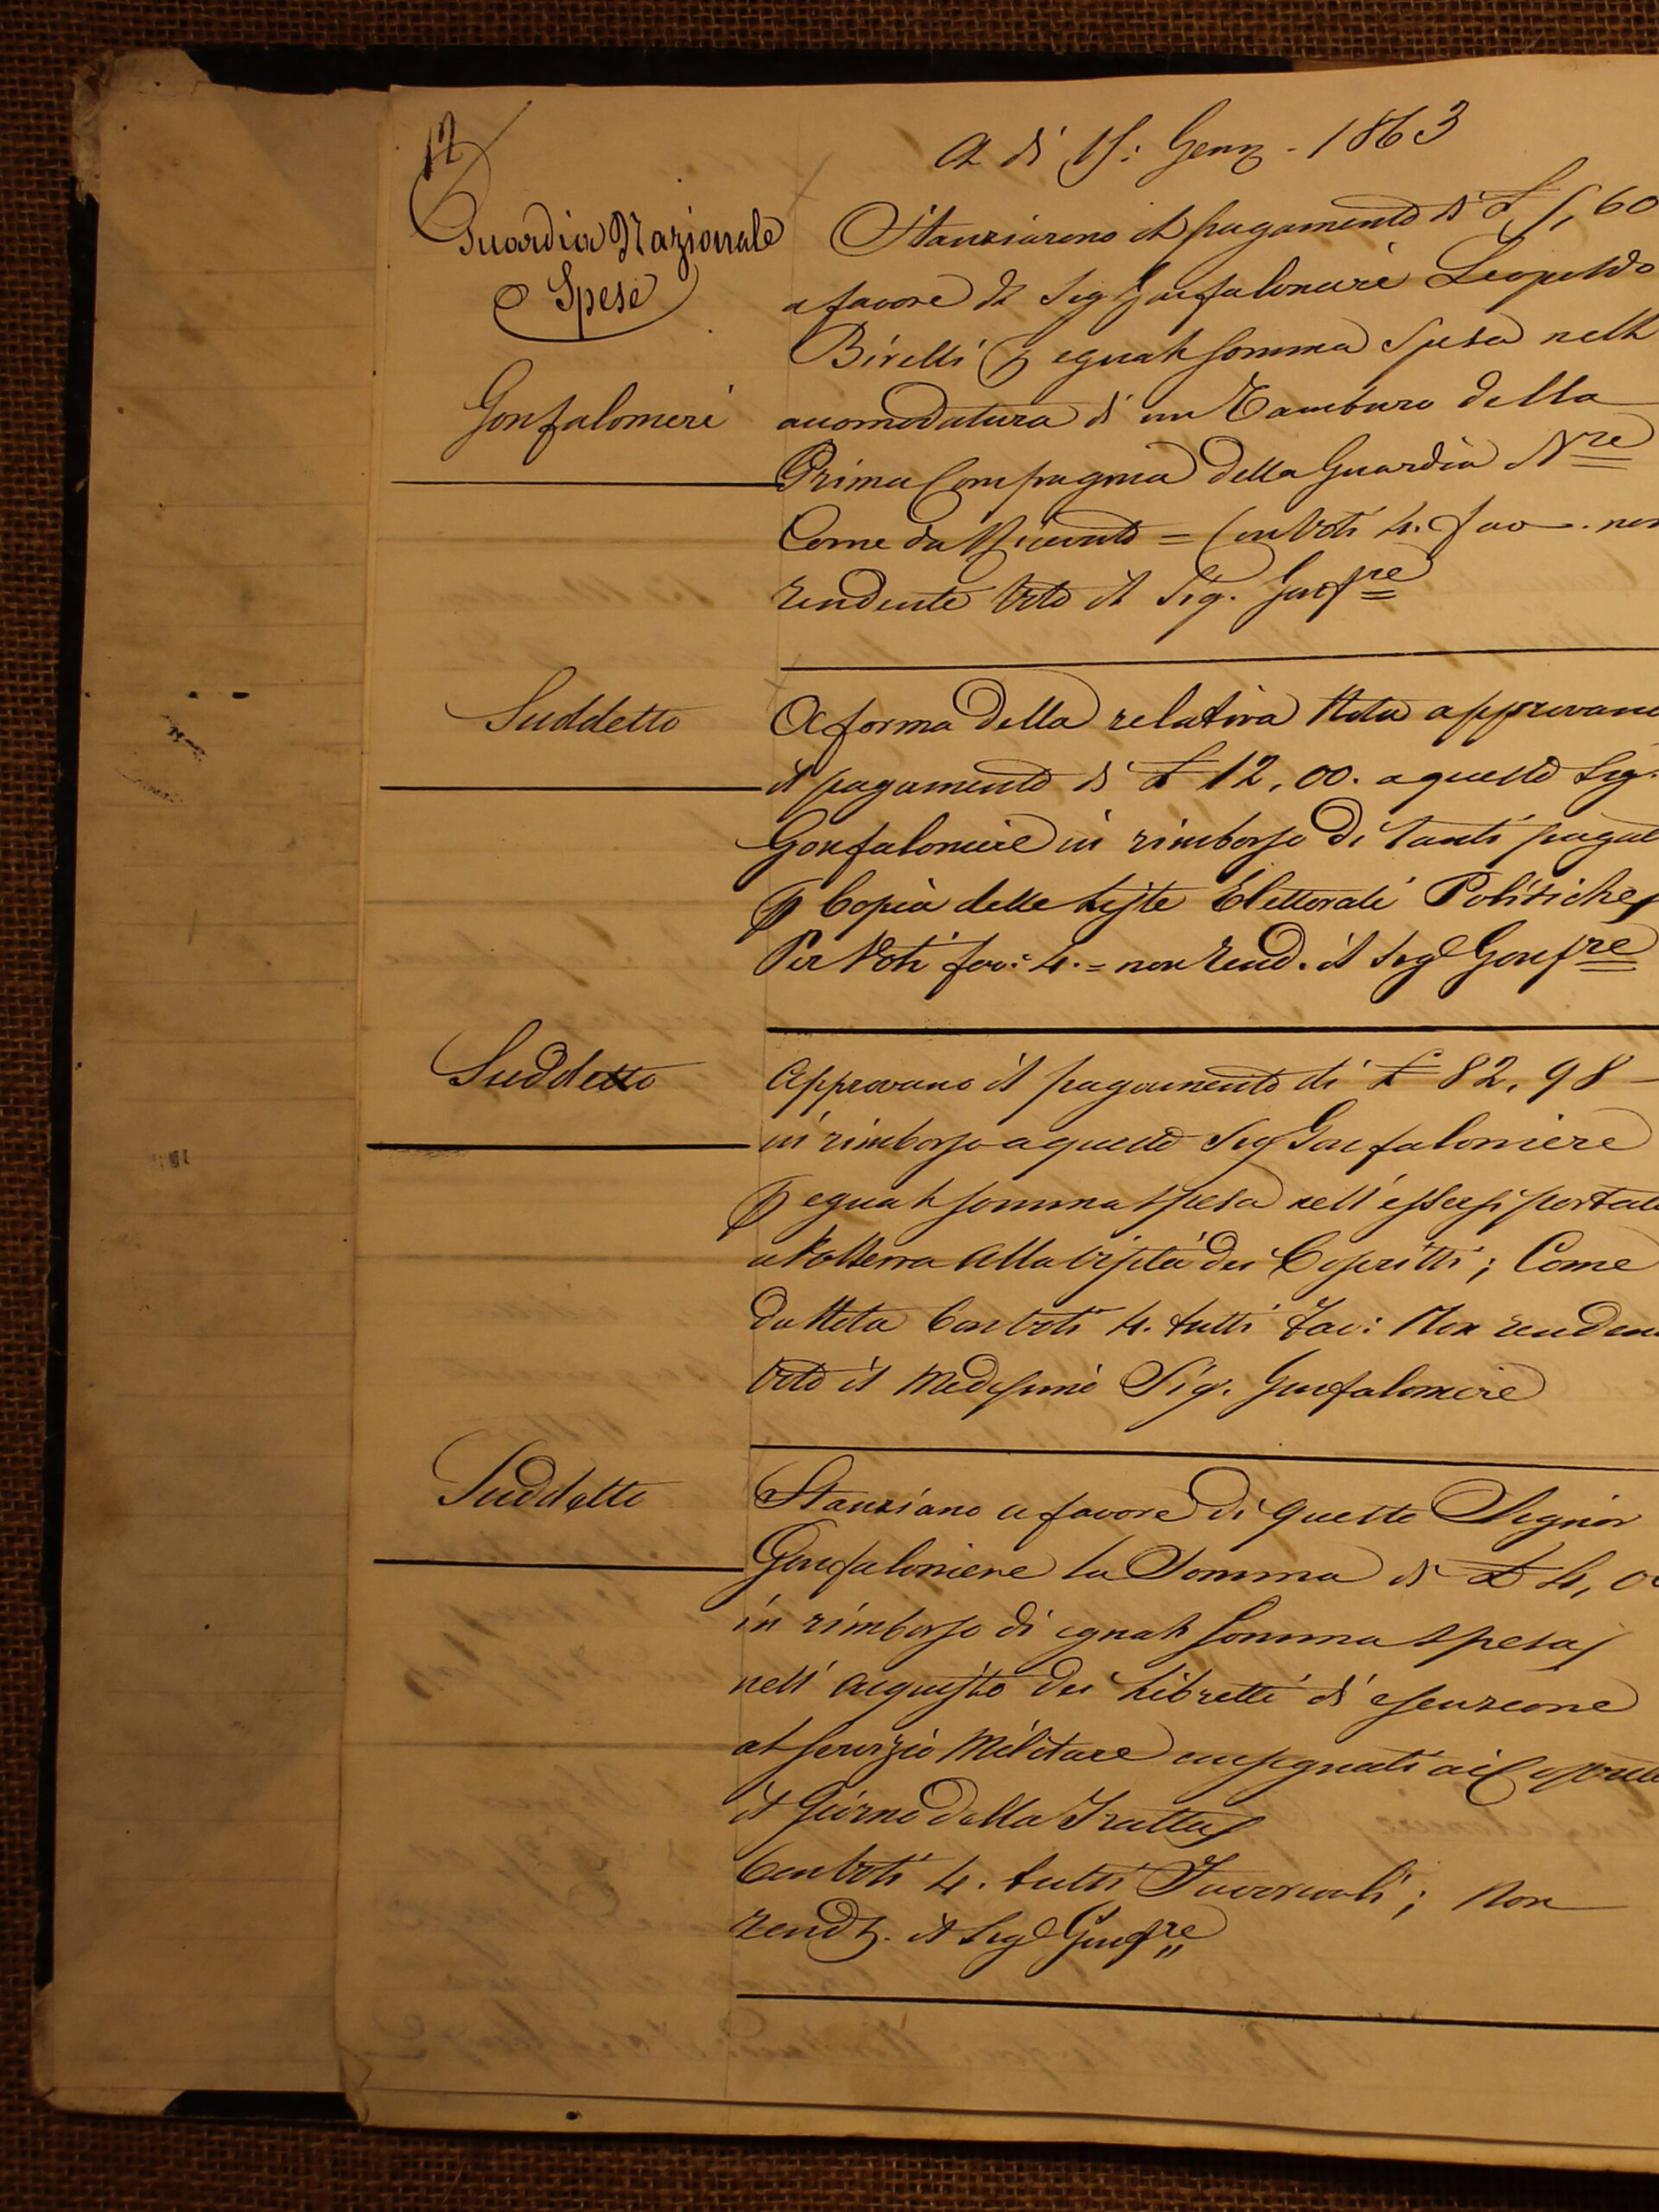 12
A di 15: Genn. 1863
Guardia Nazionale
e Spese
Gonfalonieri
Stanziarono il pagamento di £ 5, 60
a favore di Sig Gonfalonieri Leopoldo
Birelli p egual somma spesa nella
accomodatura di un Tamburo della
Prima Compagnia della Guardia Nre
Come da Ricevuto = Con Voti 4. fav. non
rendente Voto il Sig. Gonfre
Suddetto
A forma della relativa Nota approvano
il pagamento di £ 12, 00. a questo Sig.
Gonfaloniere in rimborso di tanti pagat
p Copia delle Liste Elettorali Politiche
Per Voti fav: 4. = non rend. il Sigr Gonfre
Suddetto
Approvano il pagamento di £ 82, 98 -
in rimborso a questo Sig Gonfaloniere
p egual somma spesa nell'essersi portato
a Volterra alla visita dei Coscritti; Come
da Nota Con Voti 4. tutti Fav: Non renden
Voto il Medesimo Sig. Gonfaloniere
Suddetto
Stanziano a favore di questo Signor
Gonfaloniere la Somma di £ 4, 0
in rimborso di egual somma spesa
nell'acquisto dei Libretti di esenzione
al servizio Militare consegnati ai Coscritti
il Giorno della Tratta
Con Voti 4. tutti Favorevoli; Non
rendte. il Sigr Gonfre